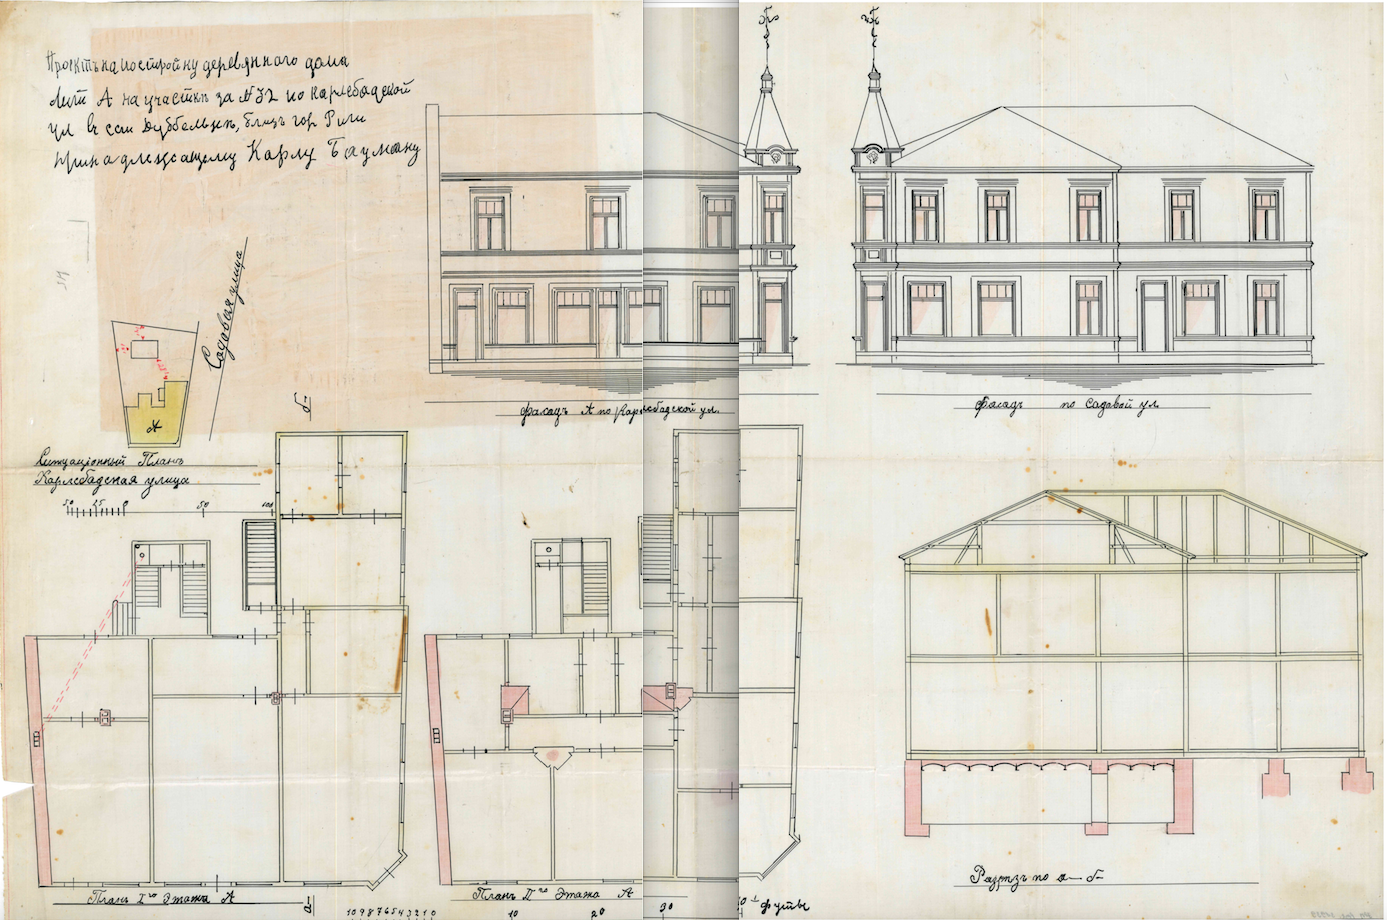 Проектъ на постройку деревяннаго дома
Лит А на участкѣ за №32 по Карлсбадской
ул въ Дуббельнѣ, близъ гор Риги
принадлежащему Карлу Бауману
Садовая улица
А
Ситуаціонный Планъ
Карлсбадская улица
50 25 0 50 100
Фасадъ А по Карлсбадской ул.
Фасадъ по Садовой ул.
б
Планъ I го Этажа А
а
Планъ II го Этажа А
10 9 8 7 6 5 4 3 2 1 0 10 20 30 футы
Разрѣзъ по а—б